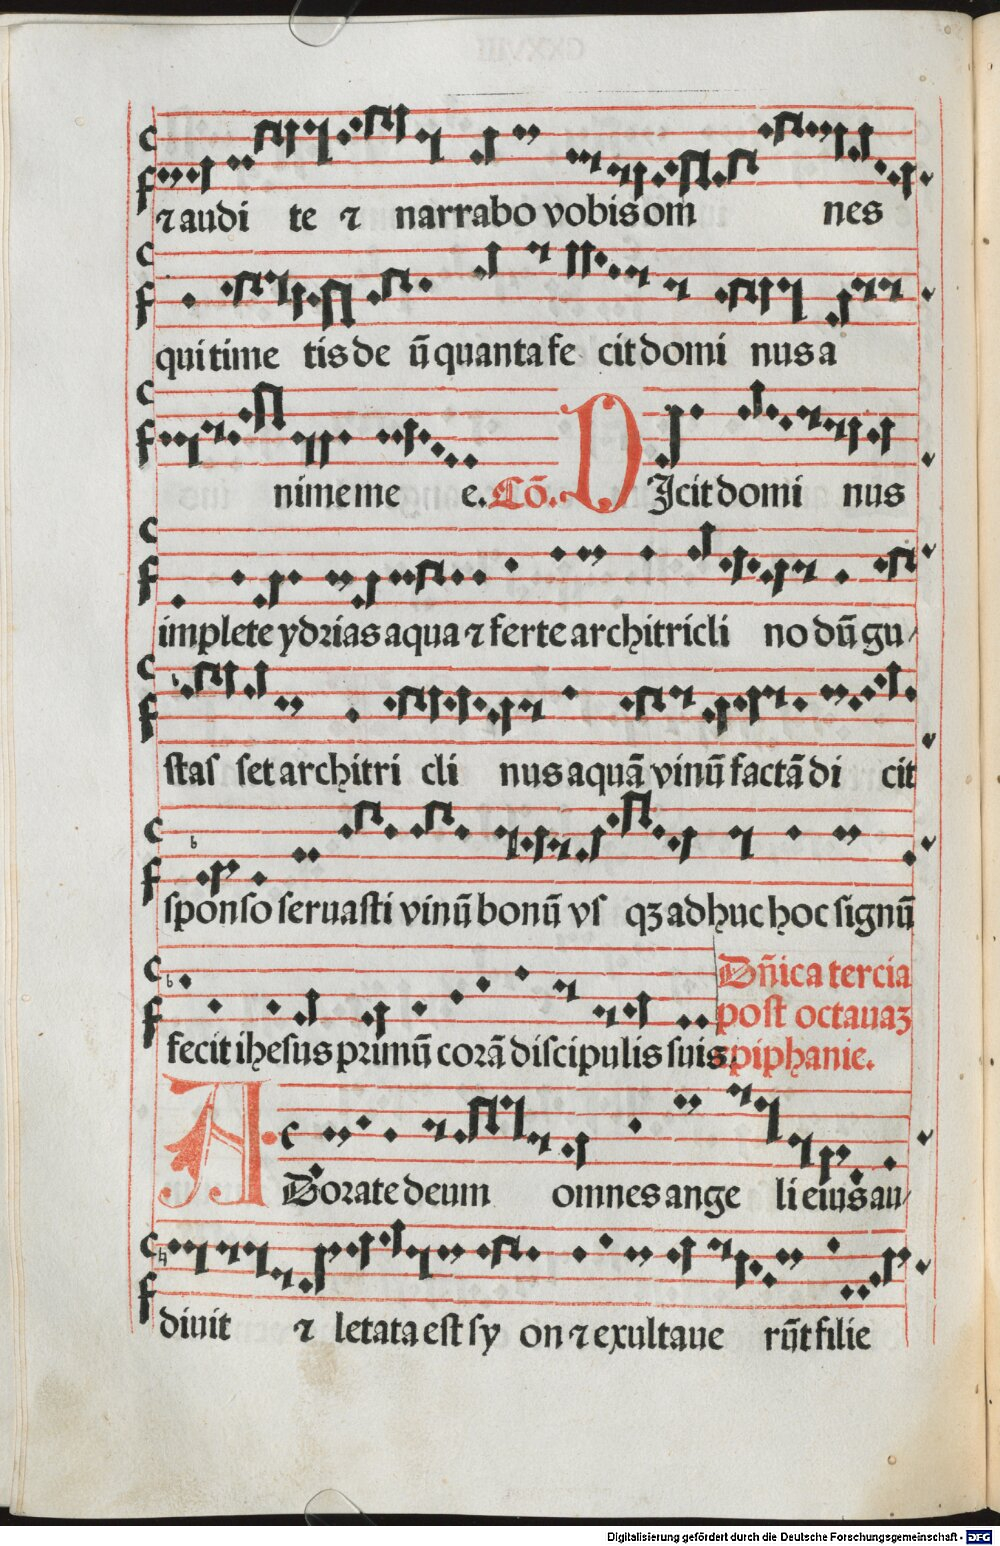 ⁊ audi te ⁊ narrabo vobis om nes
qui time tis de ū quanta fe cit domi nus a
nime me e. Cō. DJcit domi nus
implete ydrias aqua ⁊ ferte architricli no dū gu/
stas set architri cli nus aquā vinū factā di cit
sponso seruasti vinū bonū vs qꝫ adhuc hoc signū
Dn̄ica tercia
post octauaꝫ
fecit ihesus primū corā discipulis suis. epiphanie.
ADorate deum omnes ange li eius au/
diuit ⁊ letata est sy on ⁊ exultaue rūt filie
Digitalisierung gefördert durch die Deutsche Forschungsgemeinschaft - DFG